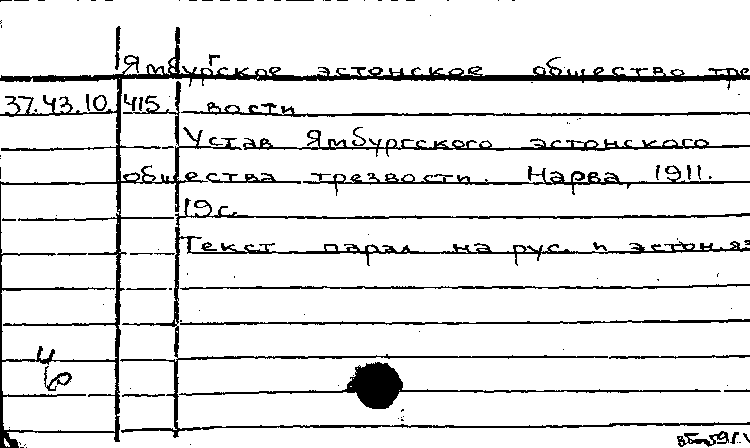 Ямбургское эстонское общество тре
37.43.10. 415. вости
Устав Ямбургского эстонского
общества трезвости. Нарва, 1911.
19с.
Текст парал на рус. и эстон.яз